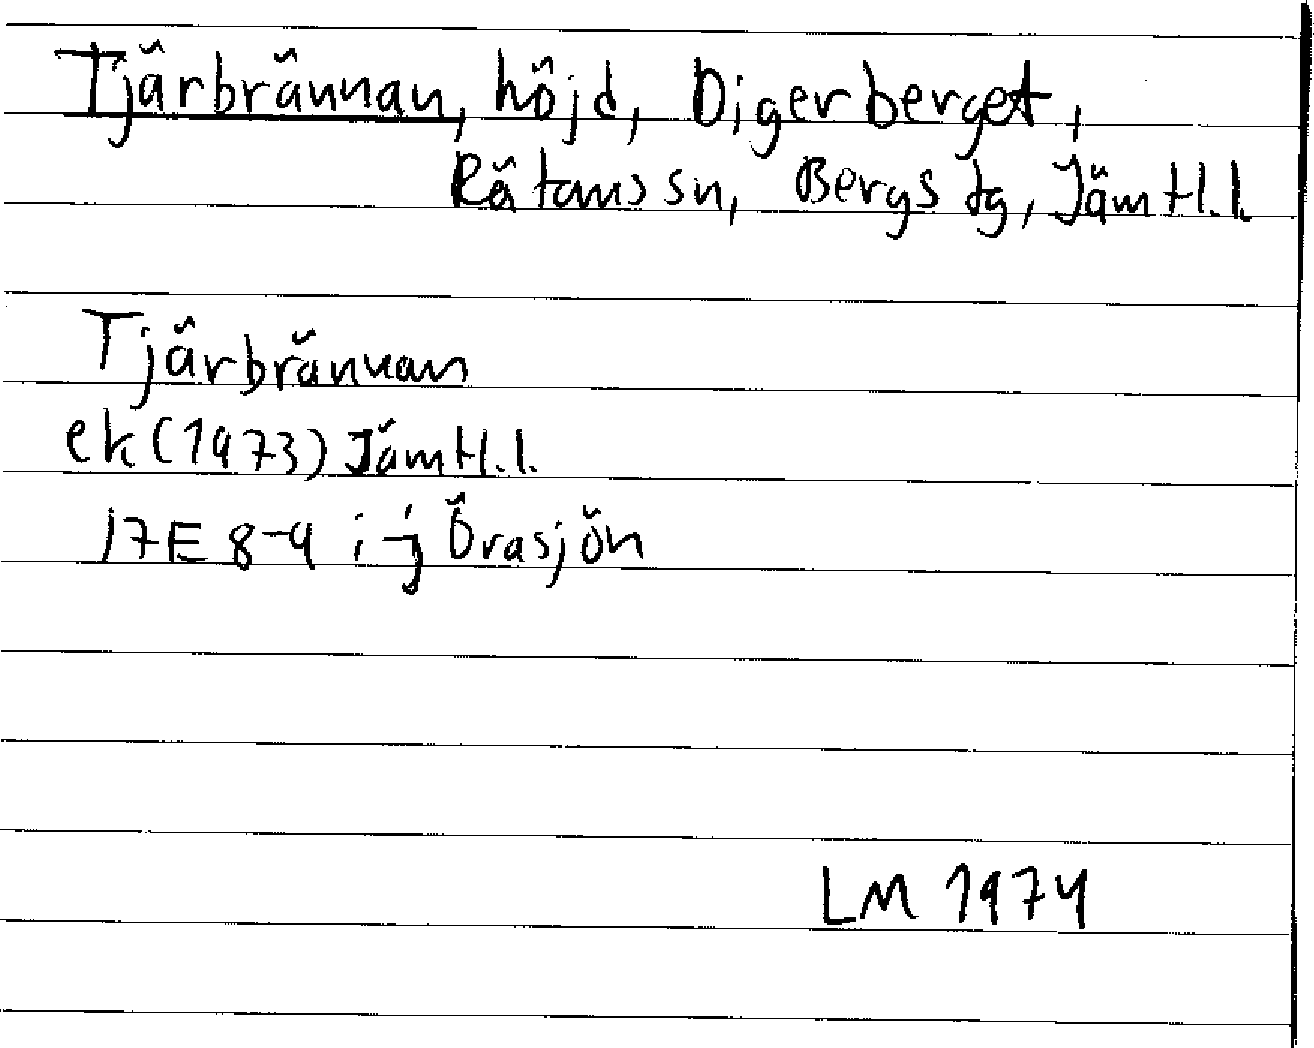 Tjärbrännan, höjd, Digerberget,
Rätans sn, Bergs tg, Jämtl. l.
Tjärbrännan
ek (1973) Jämtl. l.
17E 8-9 i-j Örasjön
LM 1974